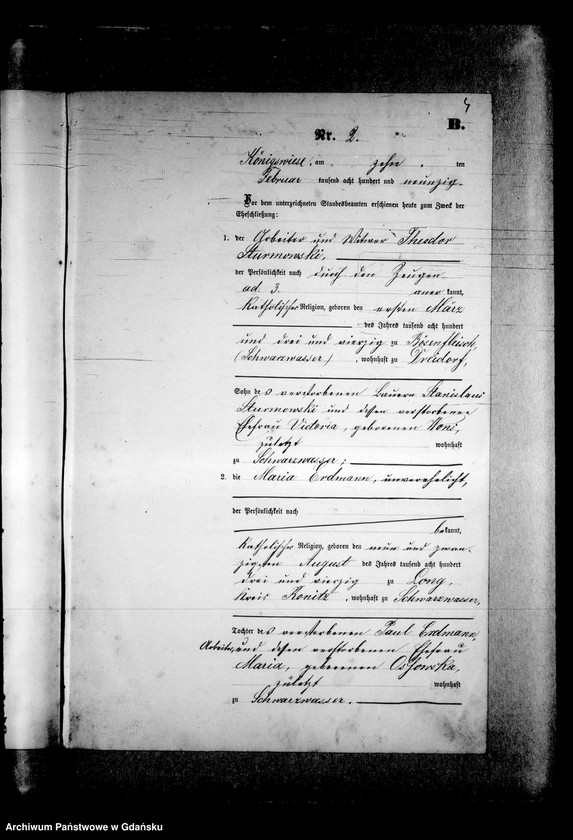 4
B.
Nr. 2.
Königswiese, am zehn ten
Februar tausend acht hundert und neunzig.
Vor dem unterzeichneten Standesbeamten erschienen heute zum Zweck der
Eheschließung:
1. der Arbeiter und Witwer Theodor
Sturmowski,
der Persönlichkeit nach durch den Zeugen
ad 3. aner kannt,
katholischer Religion, geboren den ersten März
des Jahres tausend acht hundert
und drei und vierzig zu Bösenfleisch,
(Schwarzwasser), wohnhaft zu Dreidorf,
Sohn des verstorbenen Bauern Stanislaus
Sturmowski und dessen verstorbenen
Ehefrau Victoria, geborenen
zuletzt wohnhaft
zu Schwarzwasser;
2. die Maria Erdmann, unverehelicht,
der Persönlichkeit nach
bekannt,
katholischer Religion, geboren den neun und zwan-
zigsten August des Jahres tausend acht hundert
drei und vierzig zu Long,
Kreis Konitz, wohnhaft zu Schwarzwasser,
Tochter des verstorbenen Paul Erdmann,
Arbeiter, und dessen verstorbenen Ehefrau
Maria, geborenen Ossowska,
zuletzt wohnhaft
zu Schwarzwasser.
Archiwum Państwowe w Gdańsku